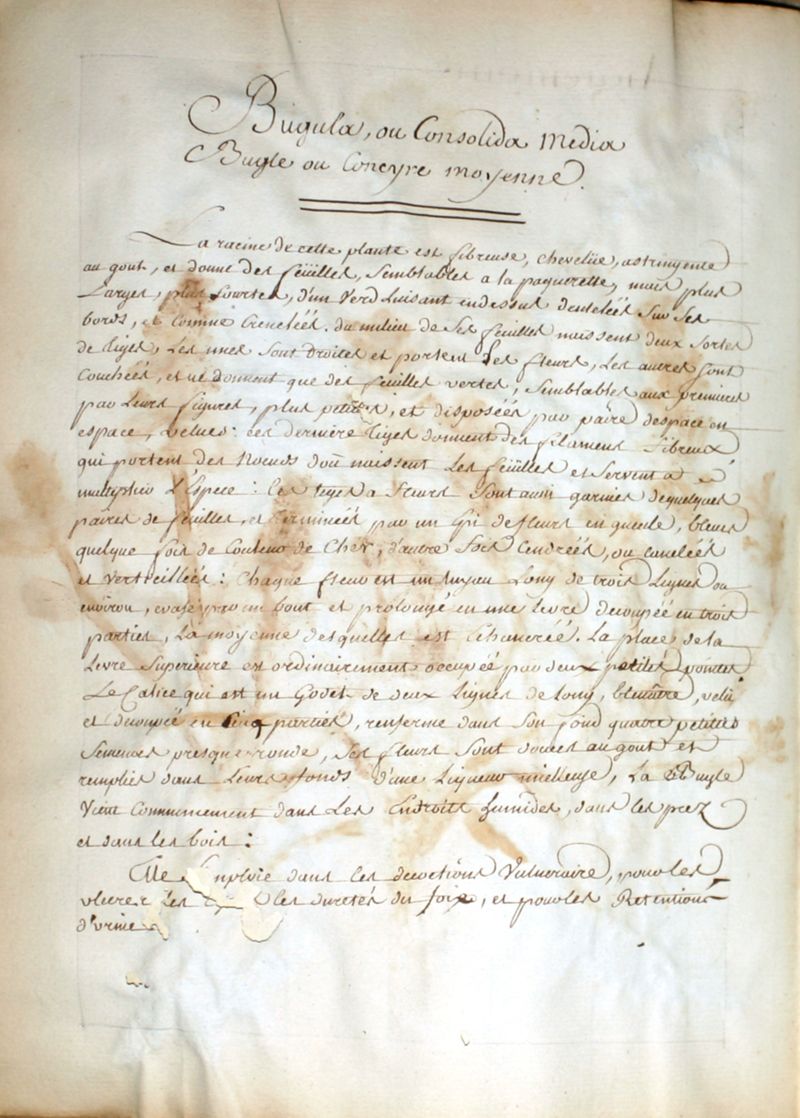 Bugula, ou Consolida Media
Bugle ou Concyre moyenne.
La racine de cette plante est fibreuse, chevelüe, astringente
au gout, et donne des feüilles, semblables a la paquerette, mais plus
Larges, plus Lourtes, d'un Verd Luisant en dessus dentelées Sur Ses
bords, et comme Crenelées. du milieu de Ses feuilles naissent deux Sortes
de tiges, Les unes Sont droites et portent Des fleurs, Les autres Sont
Couchées, et ne donnent que des feuilles vertes, Semblables aux premieres
par Leurs figures, plus petites, et disposées par paire despace en
espace, velues: Ces derniere tiges donnent des filamens fibreux
qui portent des Noeuds doù naissent Les feüilles et Servent a
multiplier L'Espece: les tiges a fleurs Sont aussi garnies de quelques
paires de feuilles, et terminées par un Epi de fleurs en gueule, bleus
quelque fois de Couleur de Cher, d'autre fois Cendrées, ou canelées
et Verticillées: Chaque fleur est un tuyau Long de trois Lignes ou
environ, evasé par un bout et prolongé en une Levre decoupée en trois
parties, La moyenne desquelles est Echancrée. La place de la
Levre Superieure est ordinairement occupée par deux petites pointes
Le Calice qui est un Godet de deux Lignes de Long, bleuâtre, velu
et decoupée en Cinq parties, renferme dans Son fond quatre petites
Semences presque ronde, Ses fleurs Sont douces au gout et
remplies dans Leurs fonds d'une Liqueur mielleuse, La Bugle
Vient Communement dans Les Endroits humides, dans les prez
et dans les bois:
Elle Emploie dans les decoctions Vulneraire, pour les
ulcere Les les duretés du foix, et pour les Retentions
d'urine